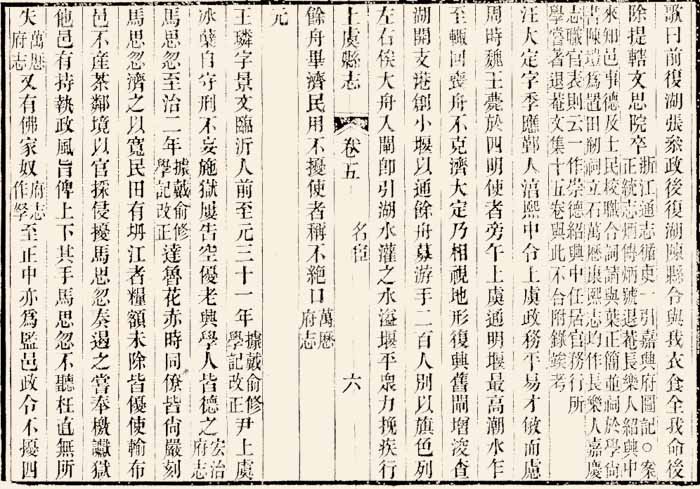 歌曰前復湖張叅政後復湖陳縣令與我衣食全我命後
除提轄文思院卒浙江通志循吏一引嘉興府圖記○案
正統志炳傳炳號退菴長樂人紹興中
來知邑事德及士民校職合詞請與葉正簡並祠於學尚
書陳塏爲置田刷祠立石萬歷康熙志均作長樂人嘉慶
志職官表則云一作崇德紹興中任居官務行所
學嘗著退菴文集十五卷與此不合附錄竢考
汪大定字季應鄞人淳熙中令上虞政務平易才敏而慮
周時魏王薨於四明使者旁午上虞通明堰最高潮水乍
至輒回喪舟不克濟大定乃相視地形復興舊閘增浚查
湖開支港創小堰以通餘舟募游手二百人別以旗色列
左右俟大舟入閘即引湖水灌之水溢堰平衆力挽疾行
上虞縣志
卷五
名臣
六
餘舟畢濟民用不擾使者稱不絕口萬歷
府志
元
王璘字景文臨沂人前至元三十一年據戴俞修
學記改正尹上虞
冰蘖自守刑不妄施獄屢告空優老興學人皆德之宏治
府志
馬思忽至治二年據戴俞修
學記改正達魯花赤時同僚皆尙嚴刻
馬思忽濟之以寬民田有坍江者糧額未除皆優使輸布
邑不産茶鄰境以官採侵擾馬思忽奏遏之嘗奉檄讞獄
他邑有持執政風旨俾上下其手馬思忽不聽枉直無所
失萬歷
府志又有佛家奴府志
作孥至正中亦爲監邑政令不擾四